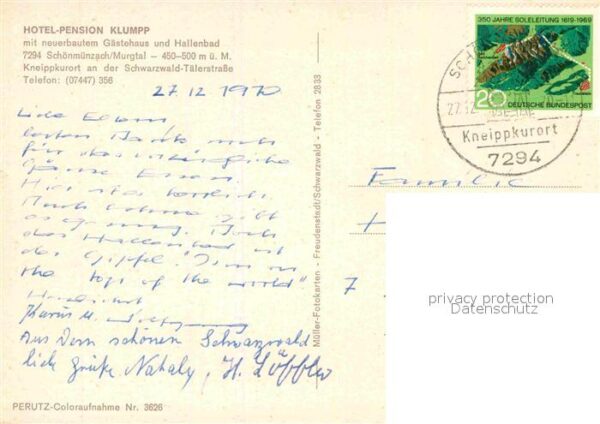 HOTEL-PENSION KLUMPP
mit neuerbautem Gästehaus und Hallenbad
7294 Schönmünzach/Murgtal – 450–500 m ü. M.
Kneippkurort an der Schwarzwald-Tälerstraße
Telefon: (07447) 356
27.12 1970
Liebe Eltern
besten Dank noch
für das
Gänse Essen.
Hier ist es herrlich.
Auch
es genug. Doch
das Hallenbad ist
der Gipfel "I'm on
the top of the world"
Herzlichst
Karin u. Wolfgang
Aus dem schönen Schwarzwald
liebe Grüße Nathaly, H. Löffler
PERUTZ-Coloraufnahme Nr. 3626
Müller-Fotokarten – Freudenstadt/Schwarzwald – Telefon 2833
350 JAHRE SOLELEITUNG 1619-1969
20 DEUTSCHE BUNDESPOST
27.12
Kneippkurort
7294
Familie
7
privacy protection
Datenschutz